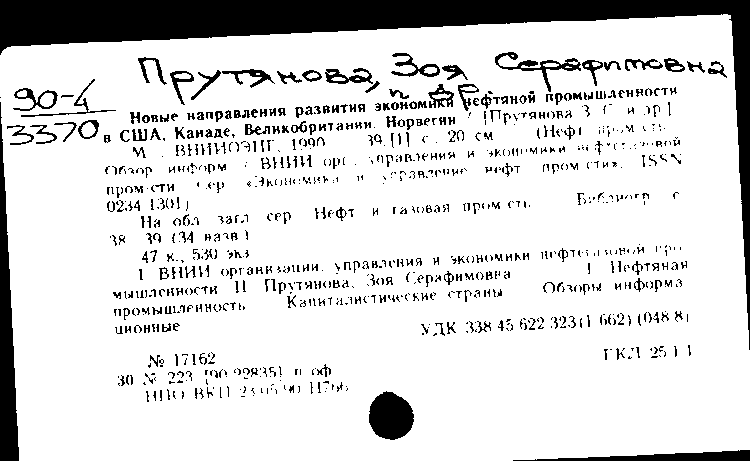 Прутянова, Зоя Серафимовна
и др.
90-4
3370
Новые направления развития экономики нефтяной промышленности
в США, Канаде, Великобритании, Норвегии / [Прутянова З. С. и др.]
М. : ВНИИОЭНГ, 1990. 39,[1] с. ; 20 см. (Нефт. пром-сть.
Обзор. информ. / ВНИИ орг., управления и экономики нефтегазовой
пром-сти. Сер. «Экономика и управление нефт. пром-сти», ISSN
0234-1301)
На обл. загл. сер.: Нефт. и газовая пром-сть. Библиогр.: с.
38—39 (34 назв.)
47 к., 530 экз.
I. ВНИИ организации, управления и экономики нефтегазовой про-
мышленности. II. Прутянова, Зоя Серафимовна. 1. Нефтяная
промышленность — Капиталистические страны — Обзоры информа-
ционные
УДК 338.45:622.323(1-662)(048.8)
№ 17162
30 № 223 [90-92835] п оф
ГКЛ 25.1.1
НПО ВКП 23.05.90 Н766